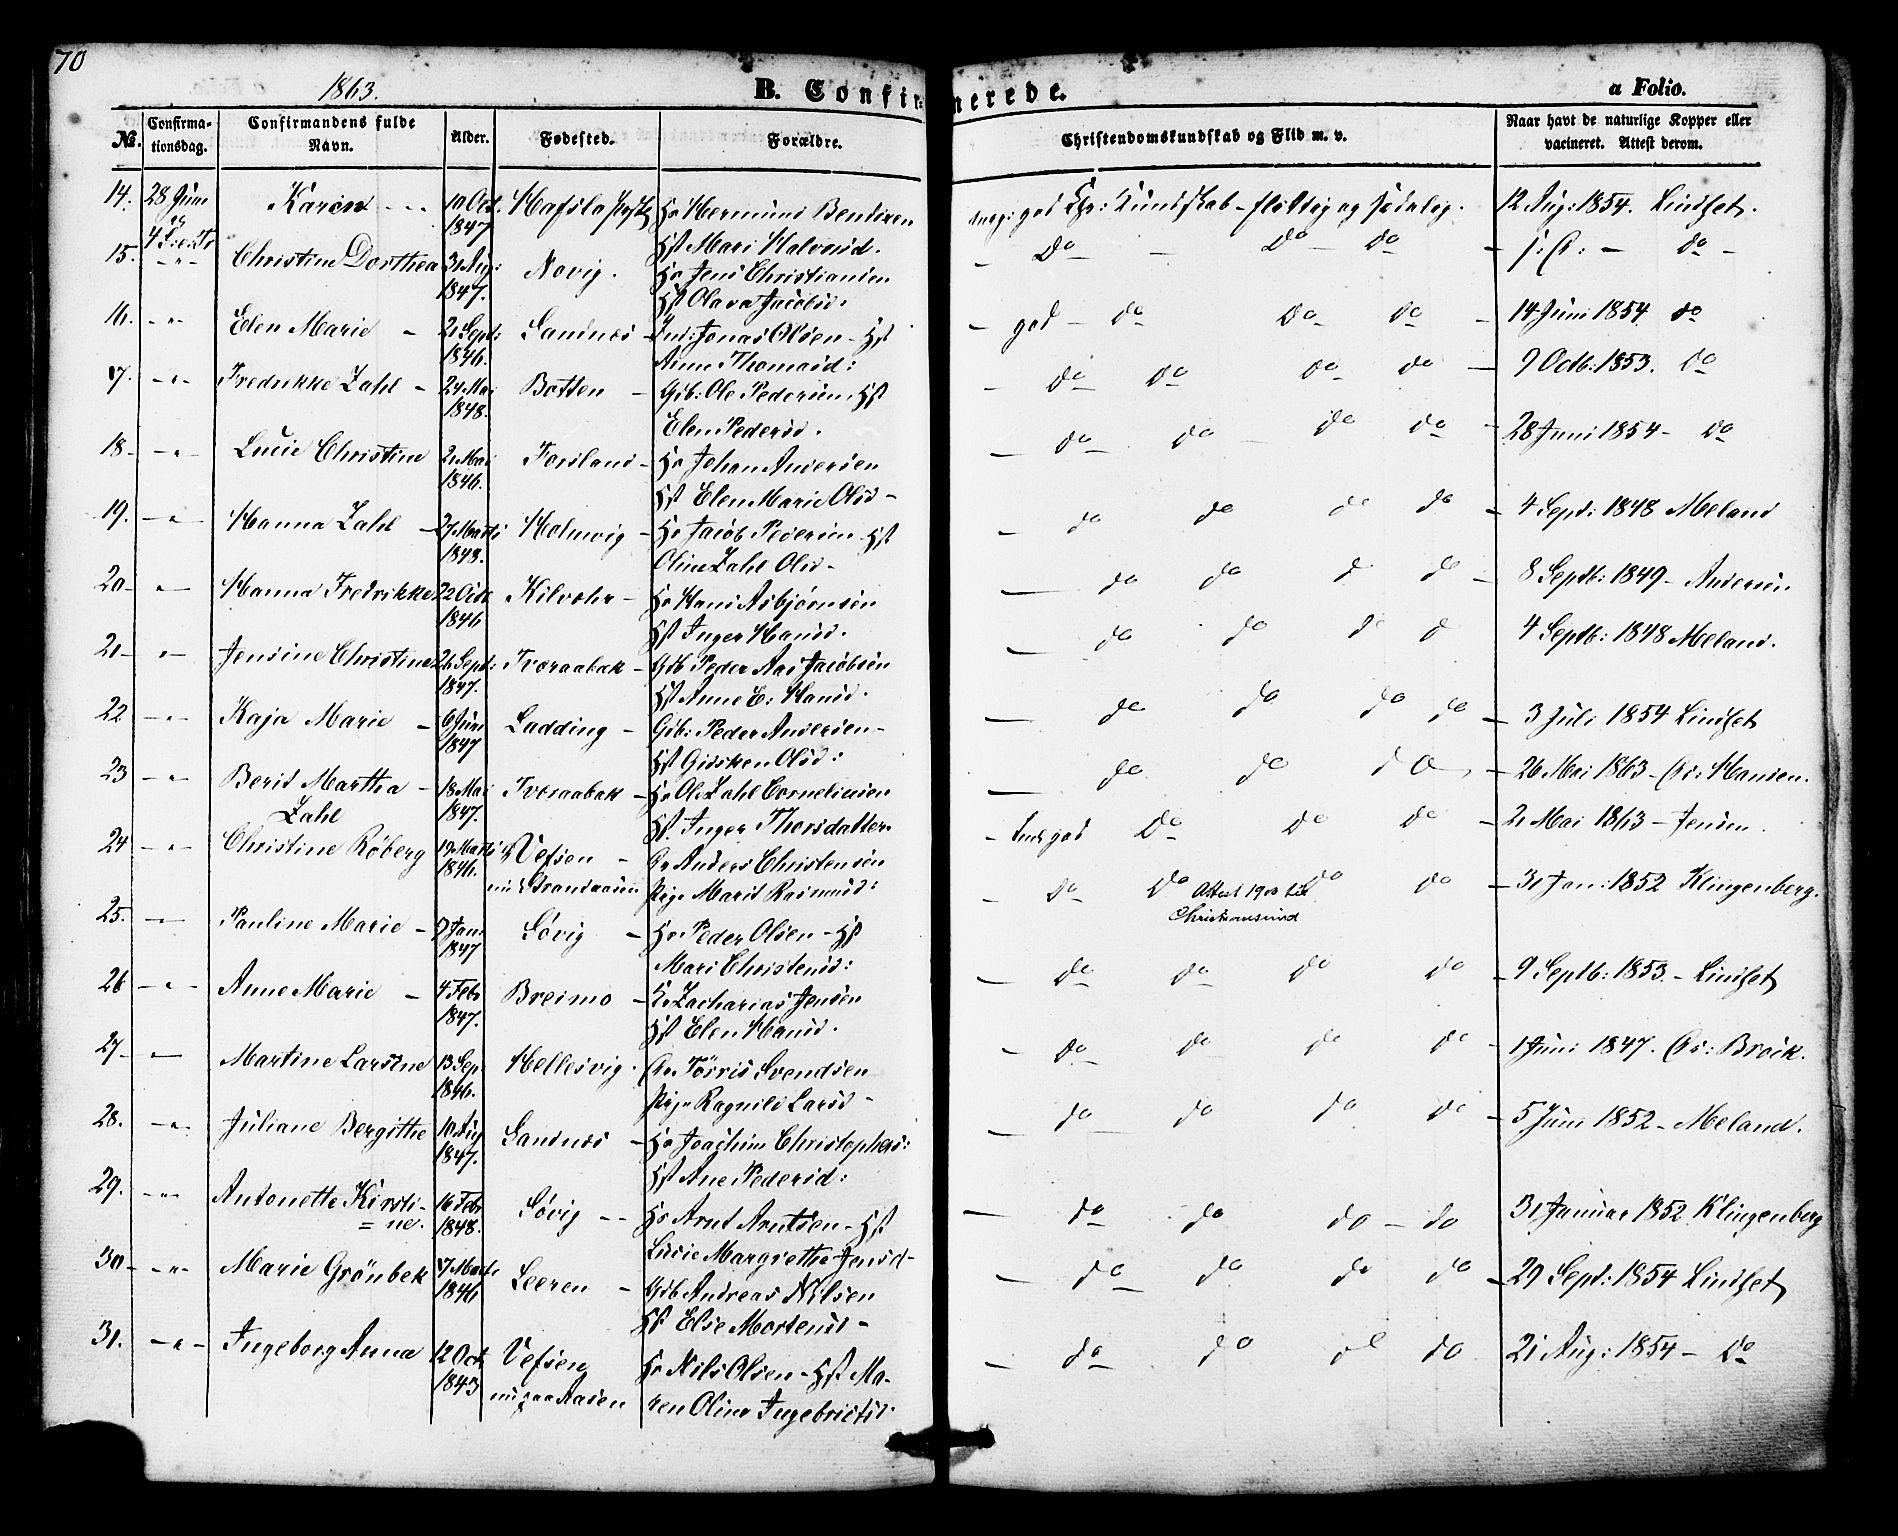 70
1863.
B. Confirmerede.
a Folio.
No. Confirmationsdag. Confirmandens fulde Navn. Alder. Fødested. Forældre. Christendomskundskab og Flid m. v. Naar havt de naturlige Kopper eller vacineret. Attest derom.
14. 28 Juni Karen - - 10 Oct. 1847 Hafsla Hr Hermund Bendixen
Hst Mari Halvorsd. meg: god Chr: Kundskab - flittig og sædelig. 12 Aug: 1854. Lindset.
15. - " - Christine Dorthea 31 Aug: 1847. Novig. Hr Jens Christiansen
Hst Olava Jacobsd. - Do - Do - do - do -
16. - " - Elen Marie - 21 Sept: 1846. Sandnes - Ind: Jonas Olsen - Hst
Anne Thomasd: - god - do Do do - 14 Juni 1854 do
17. - " - Fredrikke Zahl - 24 Mai 1848. Botten - Gdb: Ole Pedersen, Hst
Elen Pedersd. - do do do do - 9 Octb: 1853. do
18 - " - Lucie Christine 21 Mai 1846. Forsland - Hr Johan Andersen
Hst Elen Marie Olsd - - do do - do do - 28 Juni 1854 - do
19. - " - Hanna Zahl - 27 Marts 1848. Holmvig - Hr Jacob Pedersen Hst
Oline Zahl Olsd - - do do do do - 4 Sept: 1848 Meland
20 - " - Hanna Fredrikke 22 Octb 1846 Kilvohr - Hr Hans Asbjørnsen
Hst Inger Hansd. - do do d do - 8 Septb: 1849 - Andersen.
21 - " - Jensine Christine 26 Sept: 1847. Tvoraabak - Gdb Peder Aas Jacobsen
Hst Anne E: Hansd. - do do do d 4 Septb: 1848 Meland.
22 - " - Kaja Marie - 6 Juni 1847 Ladding - Gdb: Peder Andersen -
Hst Gidsken Olsd: - do do do do - 3 Juli 1854 Lindset
23 - " - Berit Martha - Zahl 18 Mai 1847. Tvoraabak - Hr Ole Zahl Cornelius​en
Hst. Inger Thorsdatter. - do do do - 26 Mai 1863 - Hansen.
24 - " - Christine Røberg 19 Marts 1846. Vefsen - nu i Strandaasen Anders Christensen
Pige Marit Rasmusd: - god Do Do do - 21 Mai 1863 - Jensen.
25. - Pauline Marie - 9 Jan. 1847 Søvig - Hr Peder Olsen - Hst
Mari Christensd: - do Do do do - 31 Jan: 1852 Klingenberg.
Attest 1908 til
Christiansund
26 - " - Anne Marie - 4 Febr 1847. Breimo - Hr Zacharias Jensen
Hst Elen Hansd. - do do do do - 9 Septb: 1853. - Lindset
27 - Martine Larsine 13 Sep. 1846. Hellesvig. Tørris Svendsen
Pige Ragnild Larsd - - do do do do - 1 Juni 1847. Brock.
28. - " - Juliane Bergithe 10 Aug 1847. Sandnes - Hr Joachim Christophers:
Hst Ane Pedersd: - do do do do - 5 Juni 1852 - Meland.
29. - " - Antonette Kirstine. 16 Febr 1848. Søvig - - Hr Arnt Arntsen - Hst
Lucie Margrethe Jensd - - do do do - do 31 Januar 1852 Klingenberg
30 - " - Marie Grönbek 17 Marts 1846 Leeren - Gdb Andreas Nilsen
Hst Else Mortensd - - do do do do - 29 Sept: 1854 Lindset
31. - " - Ingeborg Anna 12 Oct. 1843 Vefsen nu paa Aasen Hr Nils Olsen - Hst Ma-
ren Oline Ingebrictsd. - do do do do 21 Aug: 1854 - Do